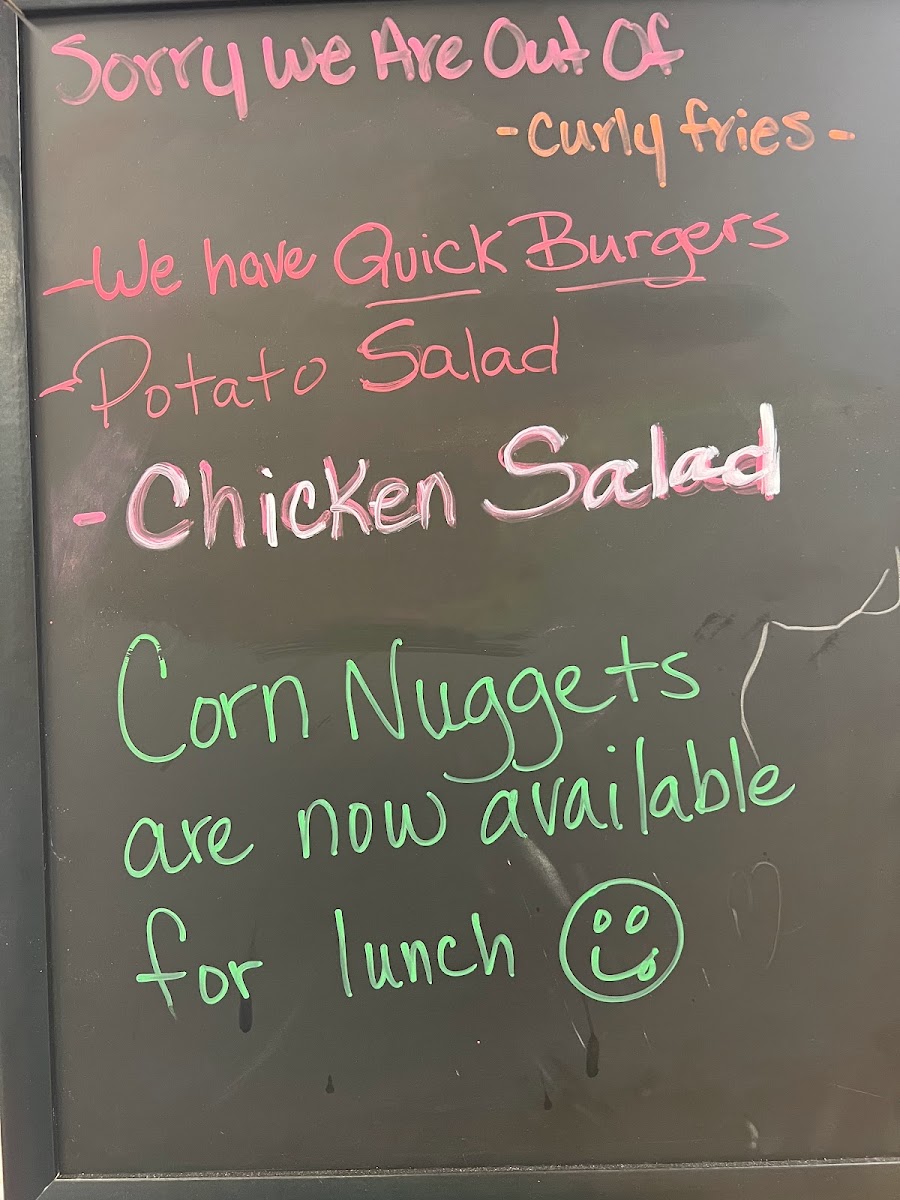 Sorry We Are Out Of
- Curly fries -
- We have Quick Burgers
- Potato Salad
- Chicken Salad
Corn Nuggets
are now available
for lunch